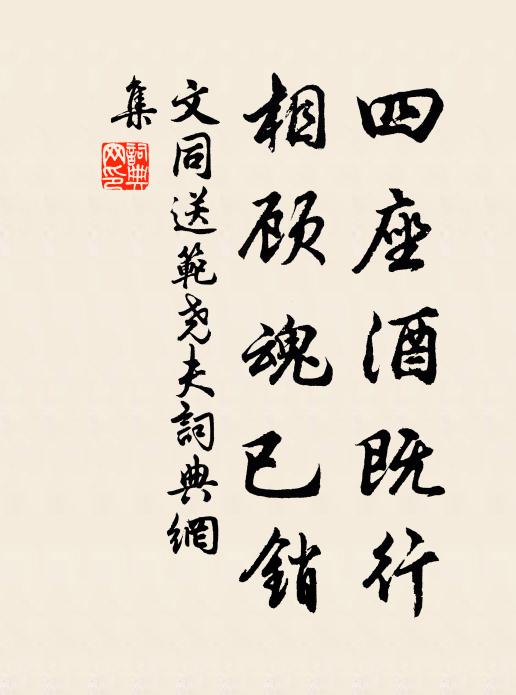 四座酒既行
相顾魂已銷
文同送範尧夫詞典網
集
詞典
网印